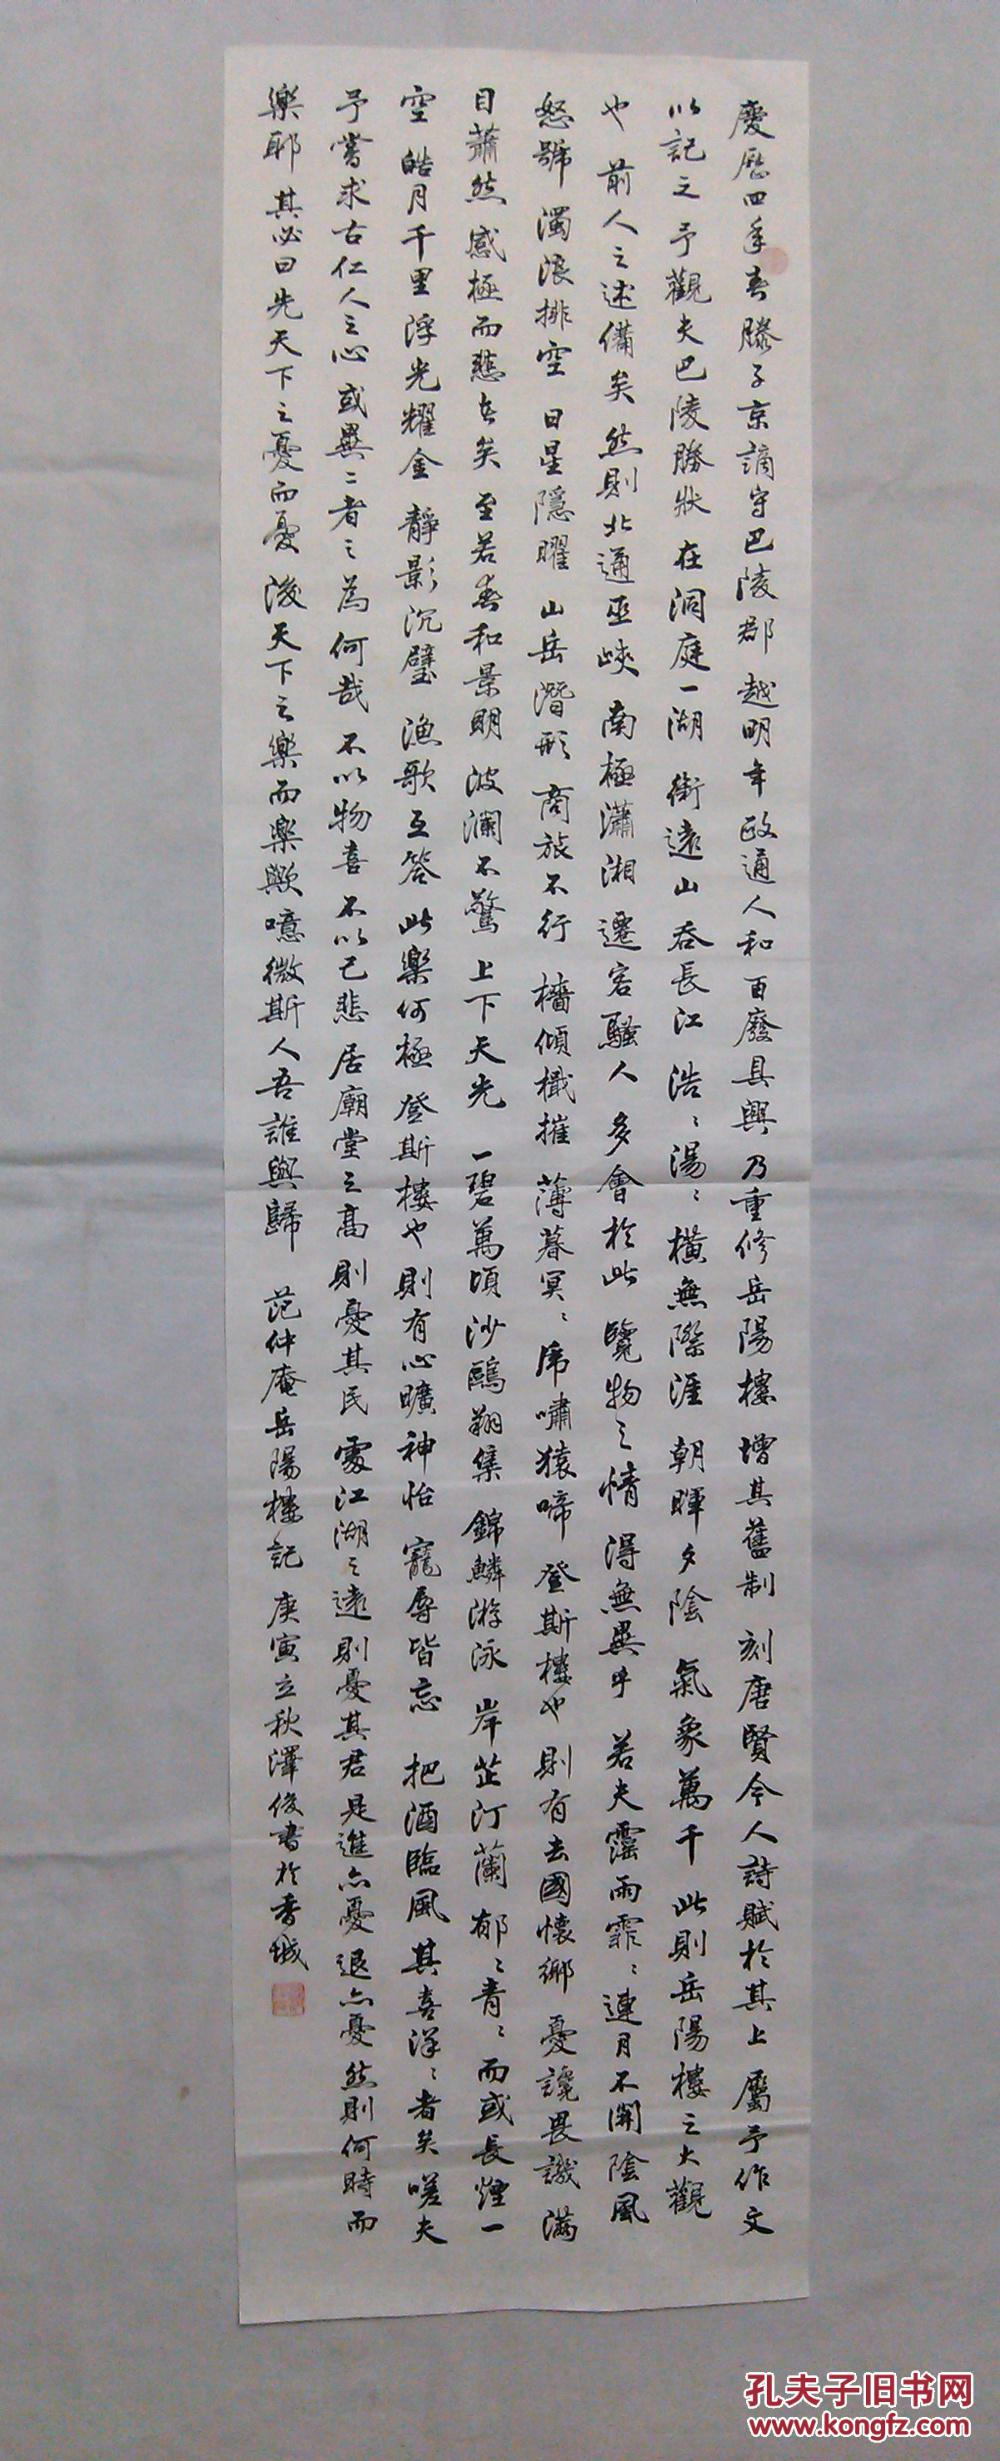 慶歷四年春滕子京謫守巴陵郡越明年政通人和百廢具興乃重修岳陽樓增其舊制刻唐賢今人詩賦於其上屬予作文
以記之予觀夫巴陵勝狀在洞庭一湖銜遠山吞長江浩〻湯〻橫無際涯朝暉夕陰氣象萬千此則岳陽樓之大觀
也前人之述備矣然則北通巫峽南極瀟湘遷客騷人多會於此覽物之情得無異乎若夫霪雨霏〻連月不開陰風
怒號濁浪排空日星隱曜山岳潛形商旅不行檣傾檝摧薄暮冥〻虎嘯猿啼登斯樓也則有去國懷鄉憂讒畏譏滿
目蕭然感極而悲者矣至若春和景明波瀾不驚上下天光一碧萬頃沙鷗翔集錦鱗游泳岸芷汀蘭郁〻青〻而或長煙一
空皓月千里浮光耀金靜影沉璧漁歌互答此樂何極登斯樓也則有心曠神怡寵辱皆忘把酒臨風其喜洋〻者矣嗟夫
予嘗求古仁人之心或異二者之為何哉不以物喜不以己悲居廟堂之高則憂其民處江湖之遠則憂其君是進亦憂退亦憂然則何時而
樂耶其必曰先天下之憂而憂後天下之樂而樂歟噫微斯人吾誰與歸 范仲庵岳陽樓記 庚寅立秋澤俊書於香城
孔夫子旧书网
www.kongfz.com